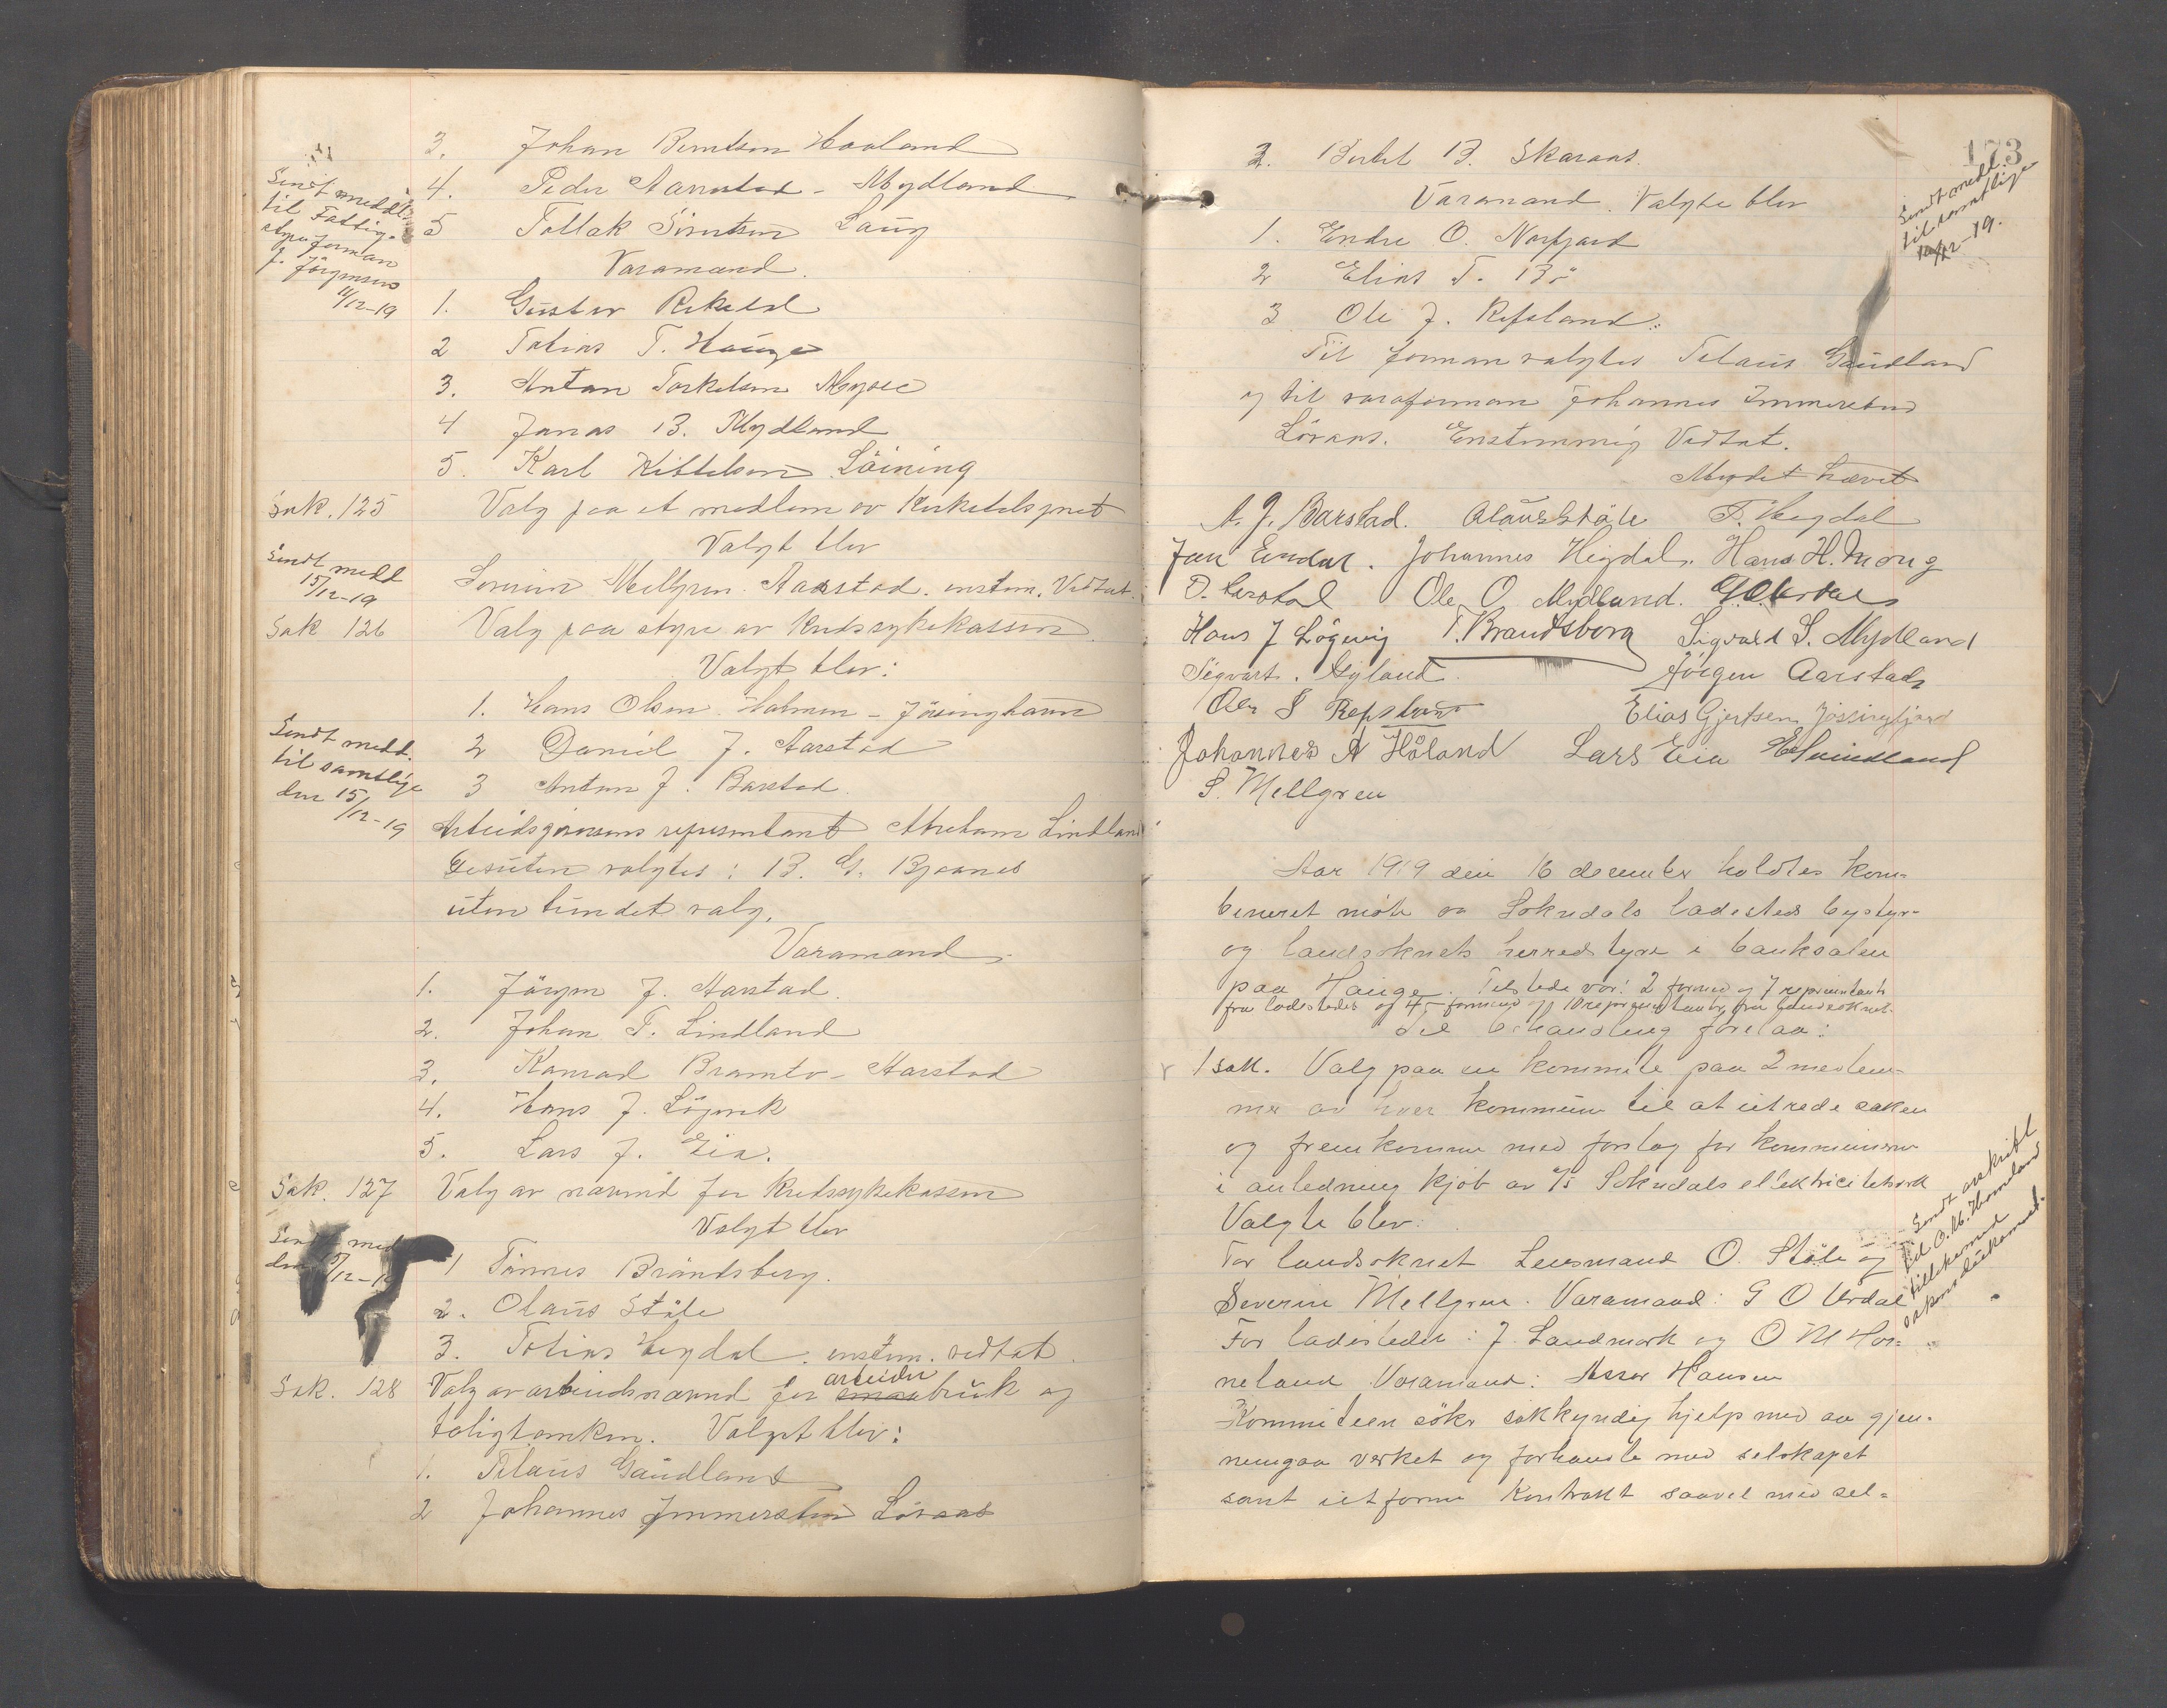 3. Johan Berntsen Haaland
Sendt meddl. til Fattigstyreforman J. Jörgensen 11/12-19
4. Peder Aarrestad - Mydland
5 Tollak Sivertsen Laug
Varamænd.
1. Gustav Rekedal
2 Tobias T. Hauge
3. Anton Torkelsen Mysse
4 Jonas B. Mydland
5. Karl Kittelsen Löining
Sak. 125 Valg paa et medlem av Kirketilsynet
Valgt blev
Sendt medd 15/12-19
Severin Mellgren Aarstad. enstem. Vedtat.
Sak 126 Valg paa styre av Kredssykekassen.
Valgt blev:
1. Hans Olsen Holmen - Jössinghavn
Sendt medd. til samtlige den 15/12-19
2 Daniel J. Aarstad
3 Anton J. Barstad.
Arbeidsgiverens repræsentant Abraham Lindland
Desuten valgtes: B. G. Bjaanes
uten bundet valg.
Varamænd
1. Jörgen J. Aarstad.
2. Johan T. Lindland
3. Konrad Aarstad
4. Hans J. Lögevik
5. Lars J. Eia.
Sak. 127 Valg av nævnd for Kredssykekassen
Valgt blev
Sendt med den 15/12-19
1 Tönnes Brandsberg.
2. Olaus Ståle
3. Tobias Hegdal. enstem. vedtat.
Sak. 128 Valg av arbeidsnævnd for arbeider bruk og
boligbanken. Valgt blev:
1. Tilaus Gaudland
2 Johannes Immerstein Lövaas
173
3. Bertel B. Skaraas.
Varamænd. Valgte blev
Sendt medd. til samtlige 19.
1. Endre O. Norfjord
2 Elias T. Bö
3 Ole J. Refsland.
Til forman valgtes Tilaus Gaudland
og til varaforman Johannes Immerstein
Lövaas. Enstemmig Vedtat.
Mødet hævet
A. J. Barstad. Olaus Ståle T. Hegdal
Jan Eindal. Johannes Hegdal. Hans H. Mong
Ole O. Mydland. G. O. Urdal
Hans J Lögevig T. Brandsberg Sigvald S. Mydland
Sigvart Gyland. Jörgen Aarstad
Ole S Refsland Elias Gjertsen Jössingfjord
Johannes A Håland Lars Eia
S. Mellgren
Aar 1919 den 16 december holdtes kom-
beneret möte av Sokndals ladesteds bystyre
og landsoknets herredstyre i banksalen
paa Hauge. Tilstede var: 2 formen og 7 repræsentanter
fra ladestedet og 4 formænd og 10 repræsentanter fra landsoknet.
Til behandling forelaa:
1 sak. Valg paa en kommite paa 2 medlem-
mer av hver kommune til at utrede saken
og fremkomme med forslag for kommunerne
i anledning kjöb av A/S Sokndals ellektricitetsverk
Valgte blev:
Sendt avskrift til O. M. Horneland tillikemed sakens dokument.
For landsoknet Lensmand O. Ståle og
Severin Mellgren. Varamand: G O Urdal
For ladestedet: J. Landmark og O M Hor-
neland Varamand: Asser Hansen
Kommiteen söker sakkyndig hjelp med aa gjen-
nemgaa verket og forhandle med selskapet
samt utforme kontrakt saavel med sel-